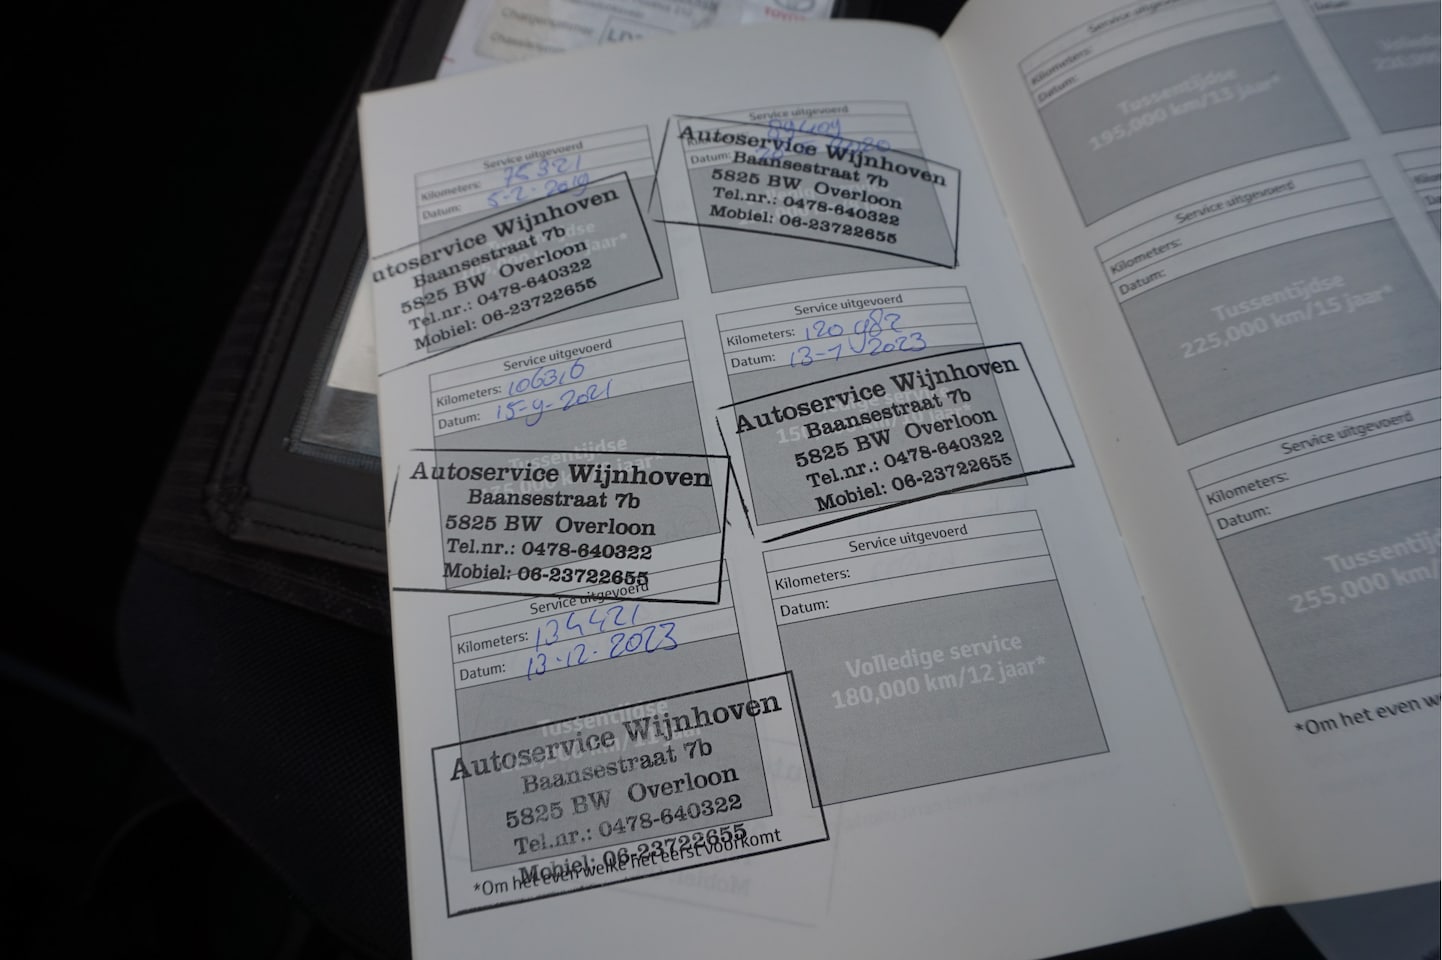 Chargenummer
TOYOTA
Service uitgevoerd
Kilometers: 75321
Datum: 5-2-2019
Autoservice Wijnhoven
Baansestraat 7b
5825 BW Overloon
Tel.nr.: 0478-640322
Mobiel: 06-23722655
Service uitgevoerd
89409
Datum:
Autoservice Wijnhoven
Baansestraat 7b
5825 BW Overloon
Tel.nr.: 0478-640322
Mobiel: 06-23722655
Service uitgevoerd
Kilometers: 106316
Datum: 15-9-2021
Tussentijdse
Autoservice Wijnhoven
Baansestraat 7b
5825 BW Overloon
Tel.nr.: 0478-640322
Mobiel: 06-23722655
Service uitgevoerd
Kilometers: 120982
Datum: 13-1-2023
Autoservice Wijnhoven
Baansestraat 7b
5825 BW Overloon
Tel.nr.: 0478-640322
Mobiel: 06-23722655
Service uitgevoerd
Kilometers: 134421
Datum: 13-12-2023
Tussentijdse
Autoservice Wijnhoven
Baansestraat 7b
5825 BW Overloon
Tel.nr.: 0478-640322
Mobiel: 06-23722655
*Om het even welke het eerst voorkomt
Service uitgevoerd
Kilometers:
Datum:
Volledige service
180,000 km/12 jaar*
Service uitgevoerd
Kilometers:
Datum:
Tussentijdse
195,000 km/13 jaar*
Service uitgevoerd
Kilometers:
Datum:
Tussentijdse
225,000 km/15 jaar*
Service uitgevoerd
Kilometers:
Datum:
Tussentijd
255,000 km/
*Om het even w